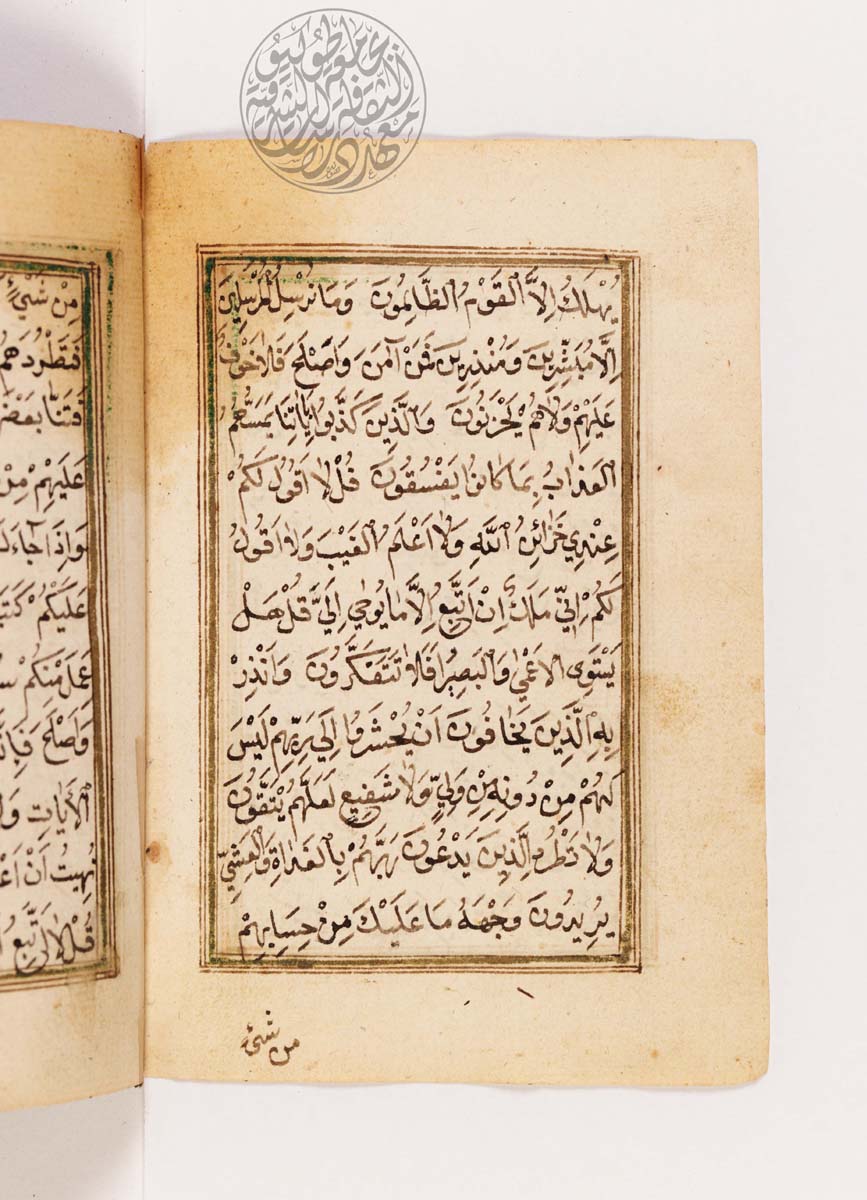 يُهْلَكُ اِلاَّ الْقَوْمُ الظَّالِمُونَ وَمَا نُرْسِلُ الْمُرْسَلِينَ
اِلَّا مُبَشِّرِينَ وَمُنْذِرِينَ فَمَنْ اٰمَنَ وَاَصْلَحَ فَلاٰ خَوْفٌ
عَلَيْهِمْ وَلاٰهُمْ يَحْزَنُونَ وَالَّذِينَ كَذَّبُوا بِاٰيَاتِنَا يَمَسُّهُمُ
الْعَذَابُ بِمَا كَانُوا يَفْسُقُونَ قُلْ لاٰ اَقُولُ لَكُمْ
عِنْدِي خَزَائِنُ اللّٰهِ وَلاٰ اَعْلَمُ الْغَيْبَ وَلاٰ اَقُولُ
لَكُمْ اِنِّي مَلَكٌ اِنْ اَتَّبِعُ اِلَّا مَا يُوحٰى اِلَيَّ قُلْ هَلْ
يَسْتَوِى الْاَعْمٰى وَالْبَصِيرُ اَفَلاٰ تَتَفَكَّرُونَ وَاَنْذِرْ
بِهِ الَّذِينَ يَخَافُونَ اَنْ يُحْشَرُوا اِلٰى رَبِّهِمْ لَيْسَ
لَهُمْ مِنْ دُونِهِ مِنْ وَلِيٍّ وَلاٰ شَفِيعٍ لَعَلَّهُمْ يَتَّقُونَ
وَلاٰ تَطْرُدِ الَّذِينَ يَدْعُونَ رَبَّهُمْ بِالْغَدٰاةِ وَالْعَشِيِّ
يُرِيدُونَ وَجْهَهُ مَا عَلَيْكَ مِنْ حِسَابِهِمْ
من شئ
مِنْ شَيْءٍ
فَتَطْرُدَهُمْ
فَتَنَّا بَعْضَ
عَلَيْهِمْ مِنْ
وَاِذَا جَاءَكَ
عَلَيْكُمْ كَتَبَ
عَمِلَ مِنْكُمْ سُ
وَاَصْلَحَ فَاِنَّ
الْاٰيَاتِ وَ
نُهِيتُ اَنْ اَعْ
قُلْ لاٰ اَتَّبِعُ